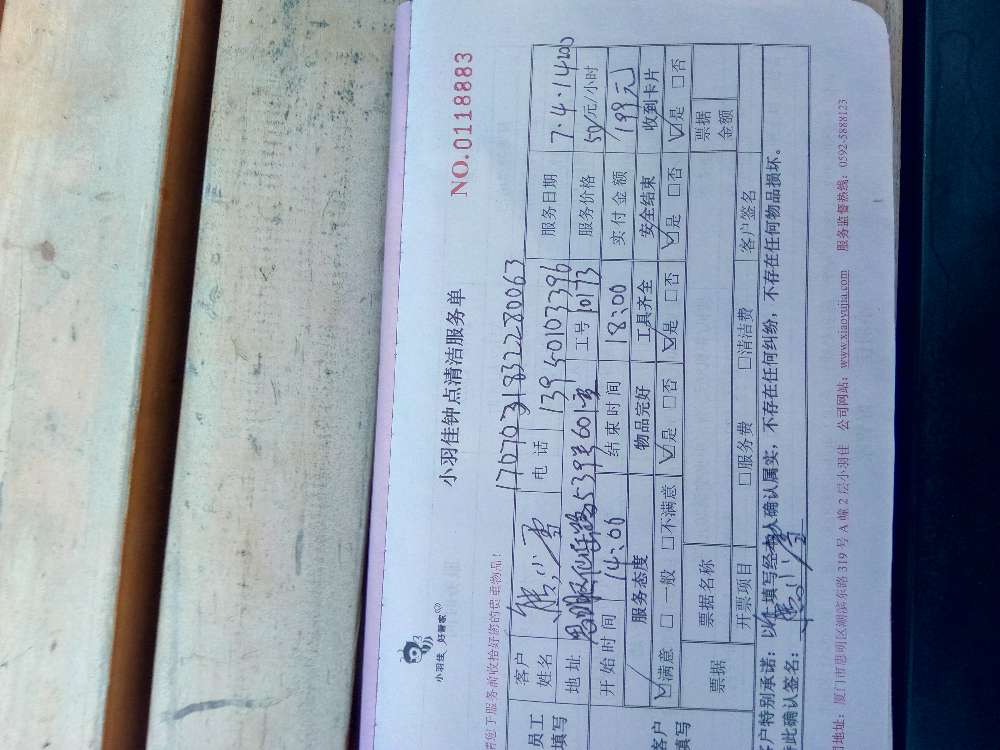 小羽佳 好管家
小羽佳钟点清洁服务单
NO.0118883
您下服务前收拾好您的贵重物品!
17070731832280063
员工
填写
客户
姓名
电话 13950103396
服务日期 7.4.1400
地址 539号601室
工号 10173
服务价格 50/元/小时
开始时间 14:00
结束时间 18:00
实付金额 199元
客户
填写
服务态度 物品完好 工具齐全 安全结束 收到卡片
☑满意 □一般 □不满意 ☑是 □否 ☑是 □否 ☑是 □否 ☑是 □否
票据 票据名称 票据
金额
开票项目 □服务费 □清洁费 客户签名
客户特别承诺:以上填写经本人确认属实,不存在任何纠纷,不存在任何物品损坏。
此确认签名:
司地址:厦门市思明区湖滨东路319号A幢2层小羽佳 公司网站:www.xiaoyujia.com 服务监督热线:0592-5888123